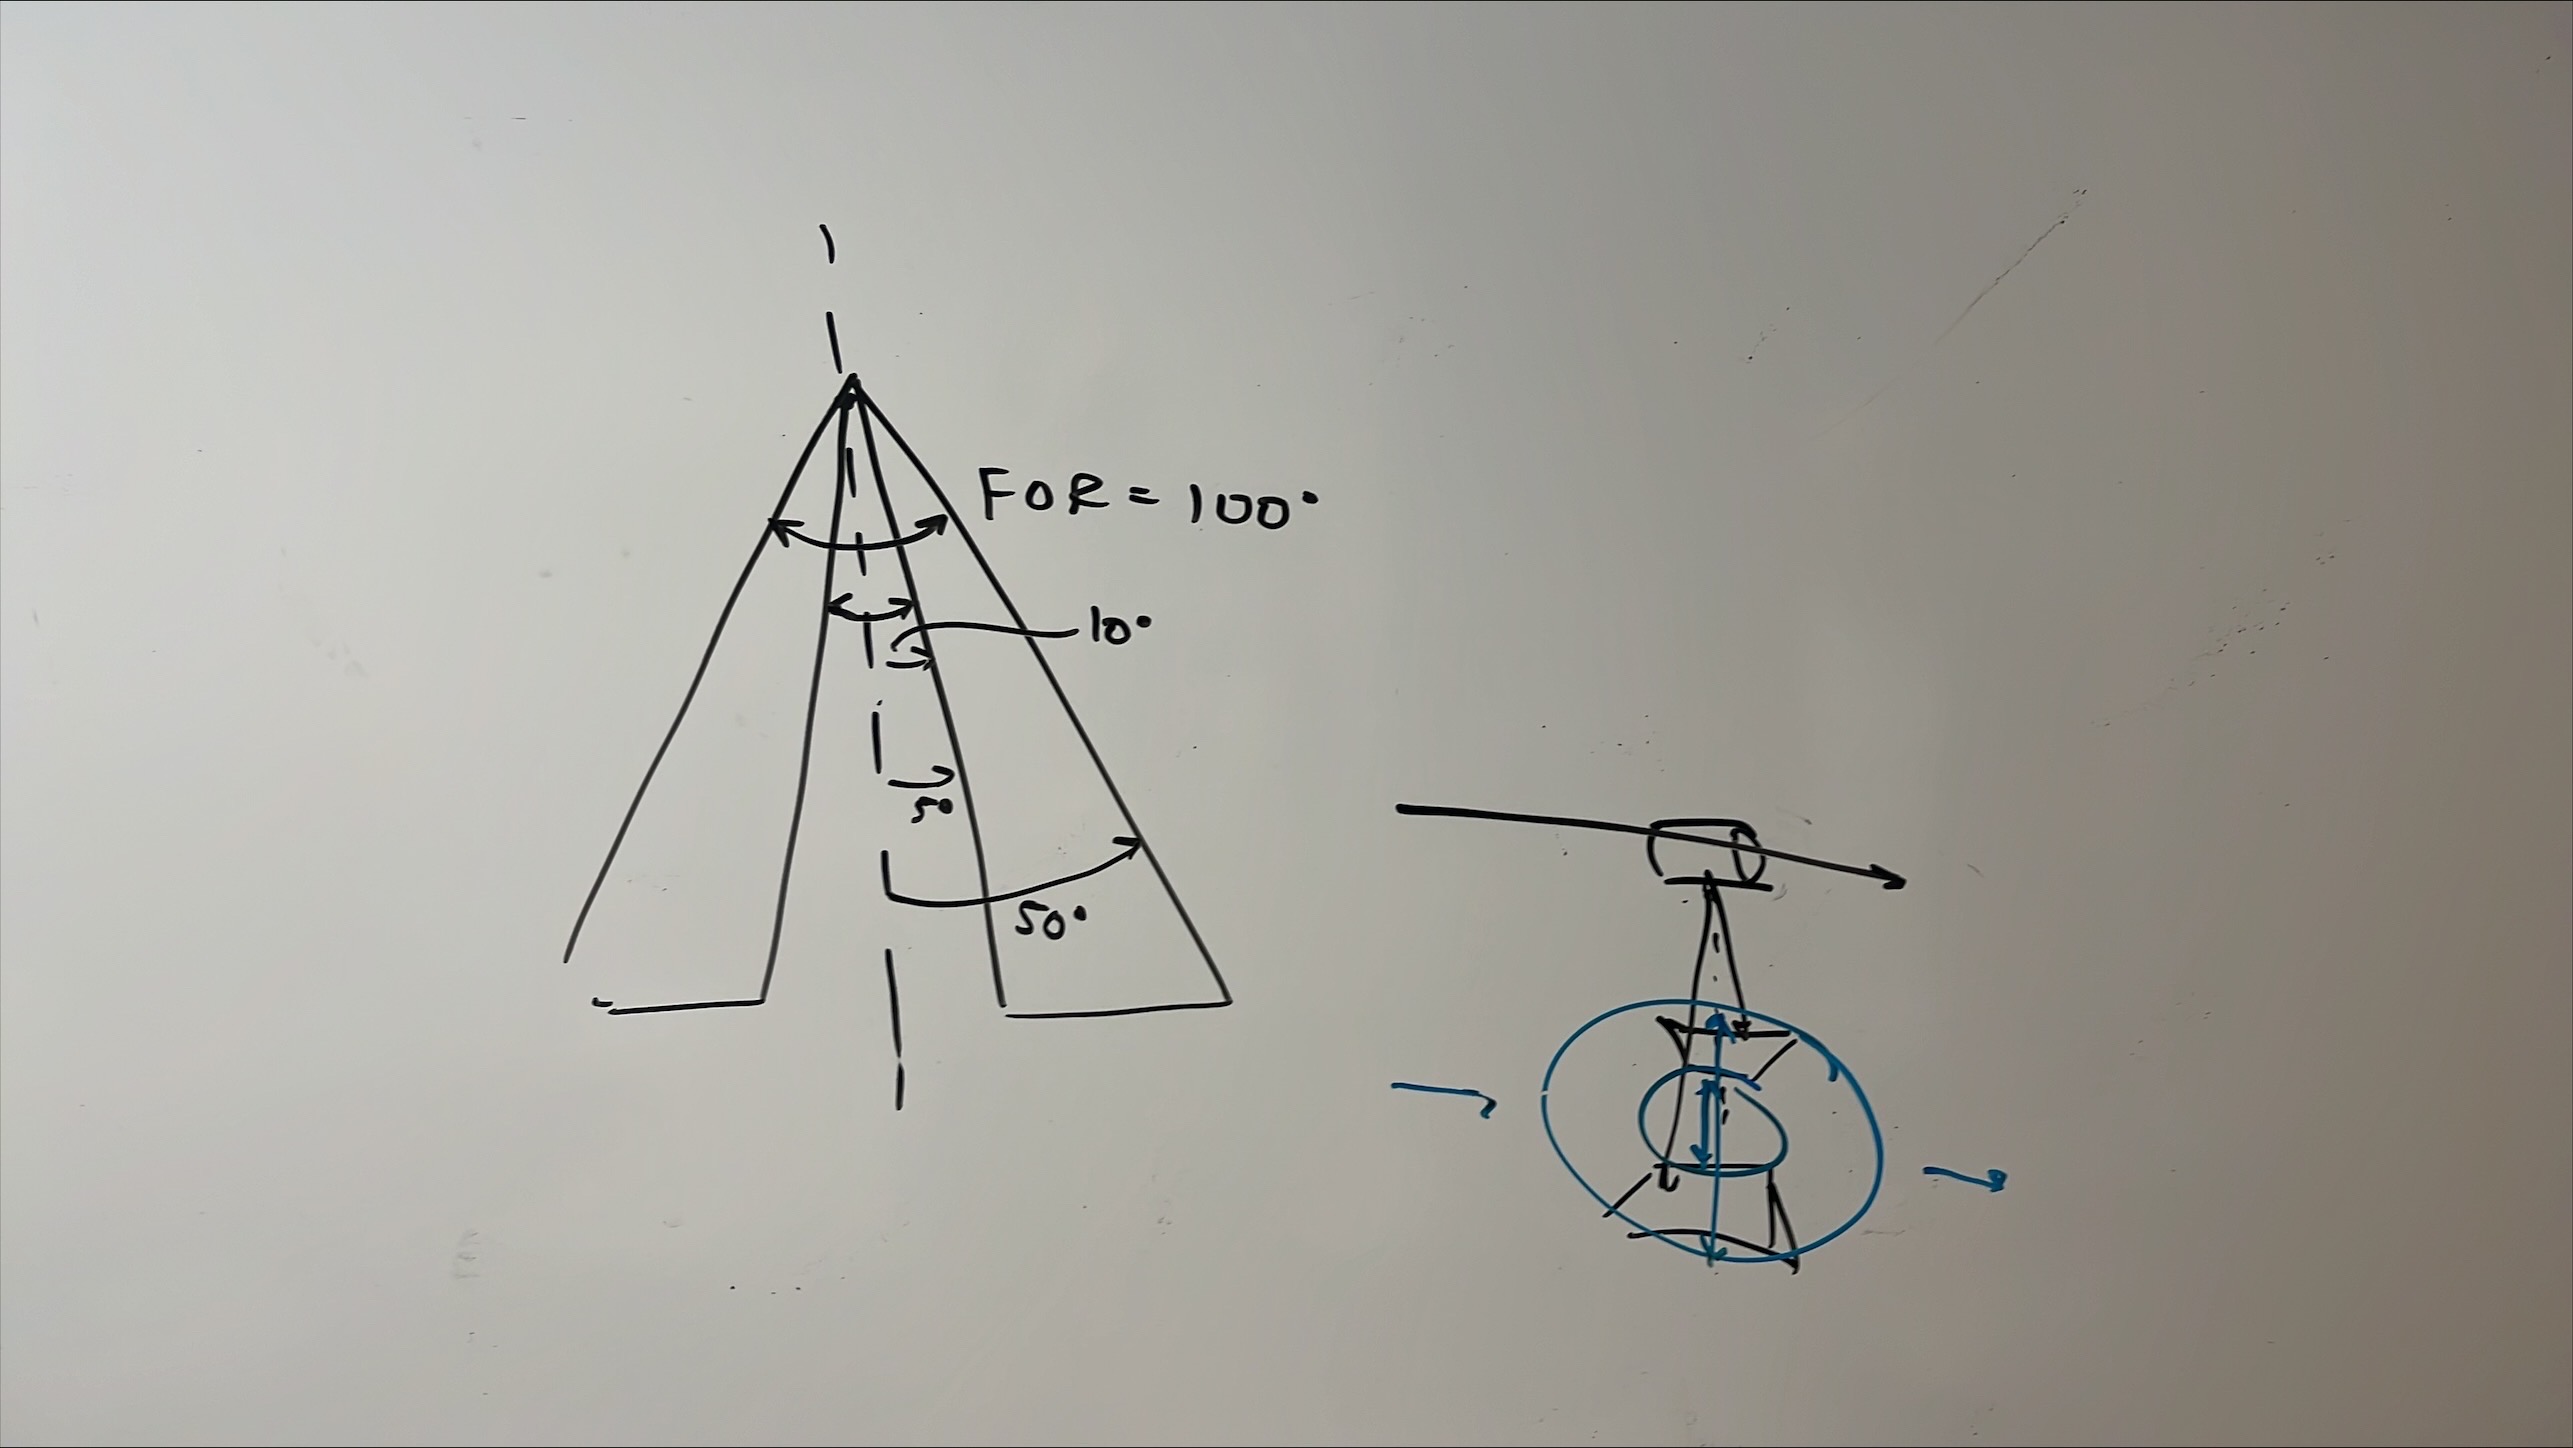 FOR = 100°
10°
5°
50°